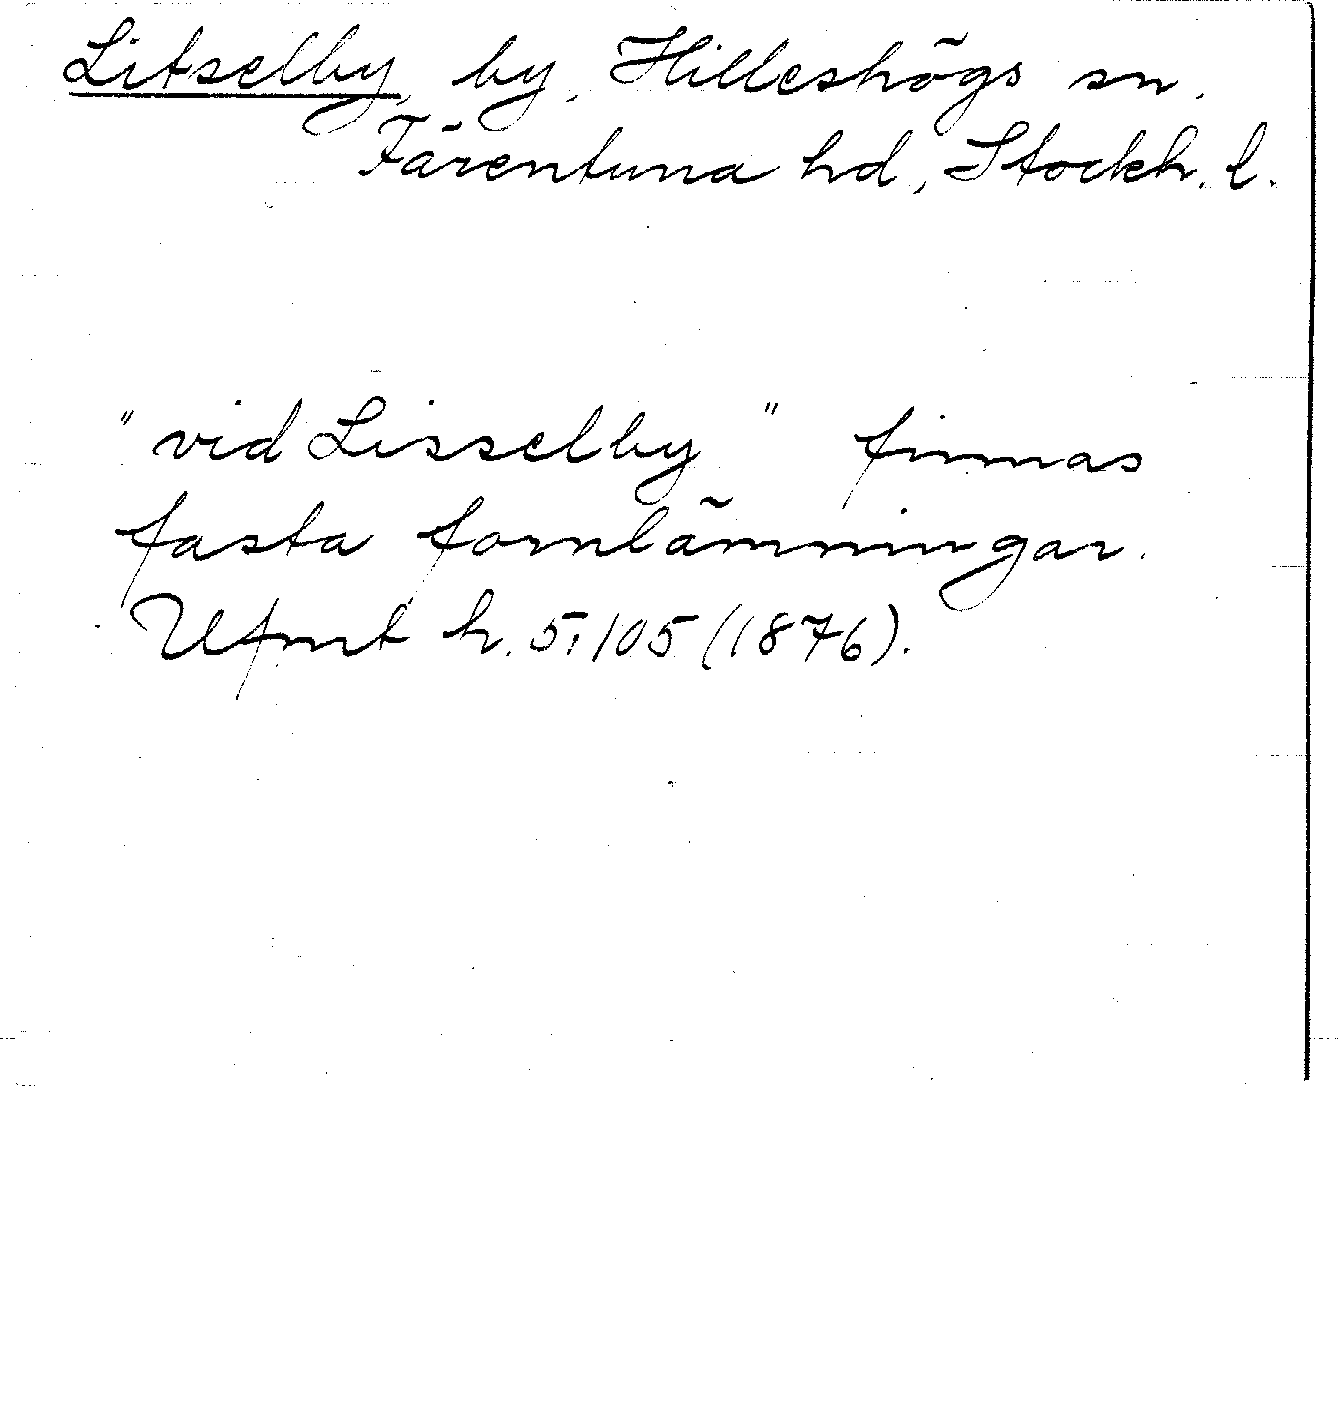 Litselby, by, Hilleshögs sn,
Färentuna hd, Stockh. l.
"vid Lisselby" finnas
fasta fornlämningar.
Ufmt h. 5, 105 (1876).